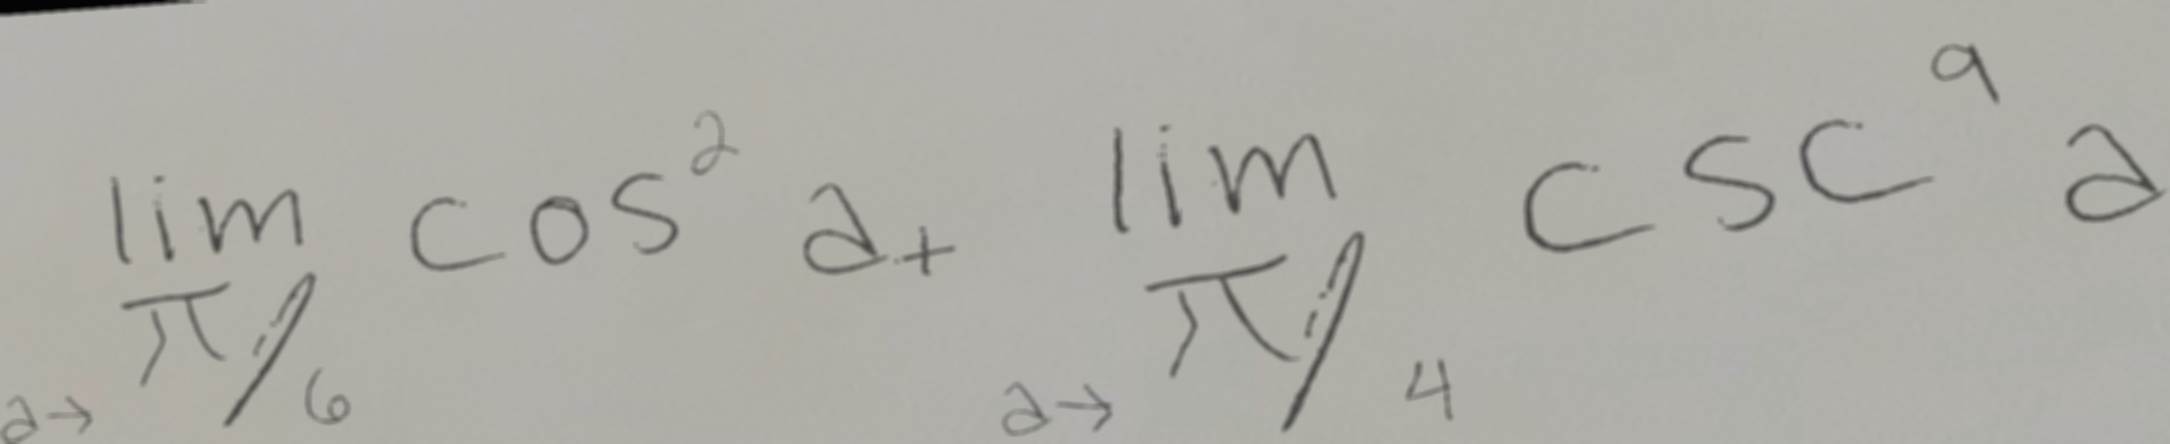 lim a→π/6 cos² a + lim a→π/4 csc⁹ a